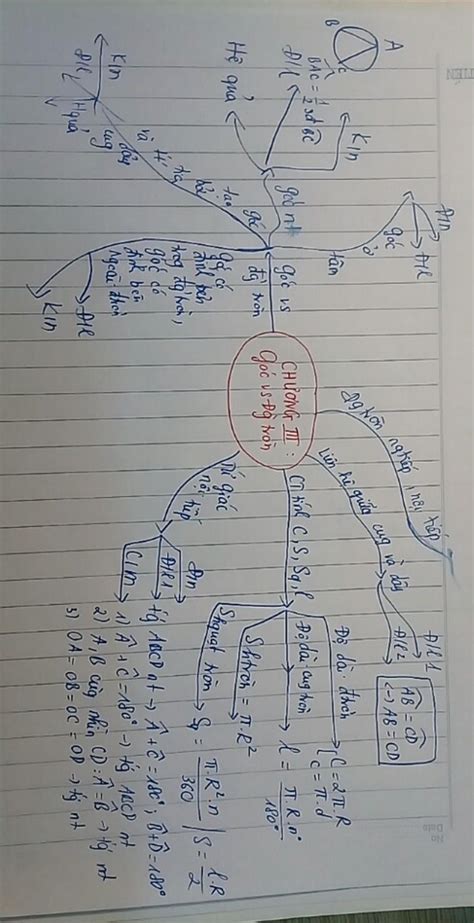 CHƯƠNG III :
Góc vs Đg tròn
góc vs
đg tròn
góc nt
Hệ quả
Đlí
BAC = 1/2 sđ BC
A
B
C
KIn
góc ở
tâm
Đn
Đlí
góc
tạo
bởi
ta
tt
và
dây
cung
KIn
Đlí
Hquả
góc có
đỉnh bên
trong đg tròn,
góc có
đỉnh bên
ngoài đtròn
Đlí
KIn
Đg tròn ngtiếp, nội tiếp
Liên hệ giữa cung và dây
Đlí 1
Đlí 2
AB = CD
<-> AB = CD
CT tính C, S, Sq, l
Độ dài đtròn
C = 2π.R
C = π.d
Độ dài cung tròn
l = π.R.n° / 180°
S htròn = π.R²
S quạt tròn
Sq = π.R².n / 360
S = l.R / 2
Tứ giác
nội tiếp
Đn
Đlí
CIm
tg ABCD nt → Â + C = 180°, B + D = 180°
1) Â + C = 180° → tg ABCD nt
2) A, B cùng nhìn CD : Â = B → tg nt
3) OA = OB = OC = OD → tg nt
No
Date